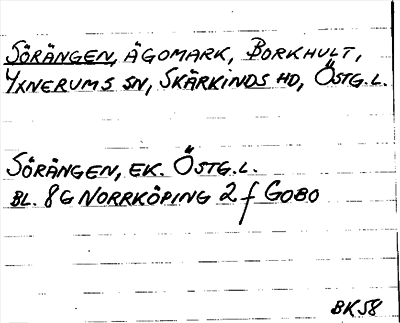 SÖRÄNGEN, ÄGOMARK, BORKHULT,
YXNERUMS SN, SKÄRKINDS HD, ÖSTG.L.
SÖRÄNGEN, EK. ÖSTG.L.
BL. 8G NORRKÖPING 2f GOBO
BK58